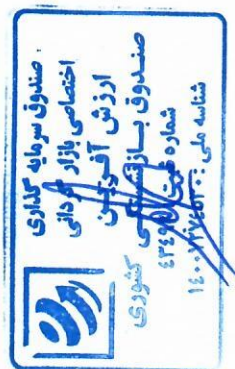 صندوق سرمایه گذاری
اختصاصی بازار گردانی
ارزش آفرین
صندوق بازنشستگی
کشوری
شماره ثبت
شناسه ملی :